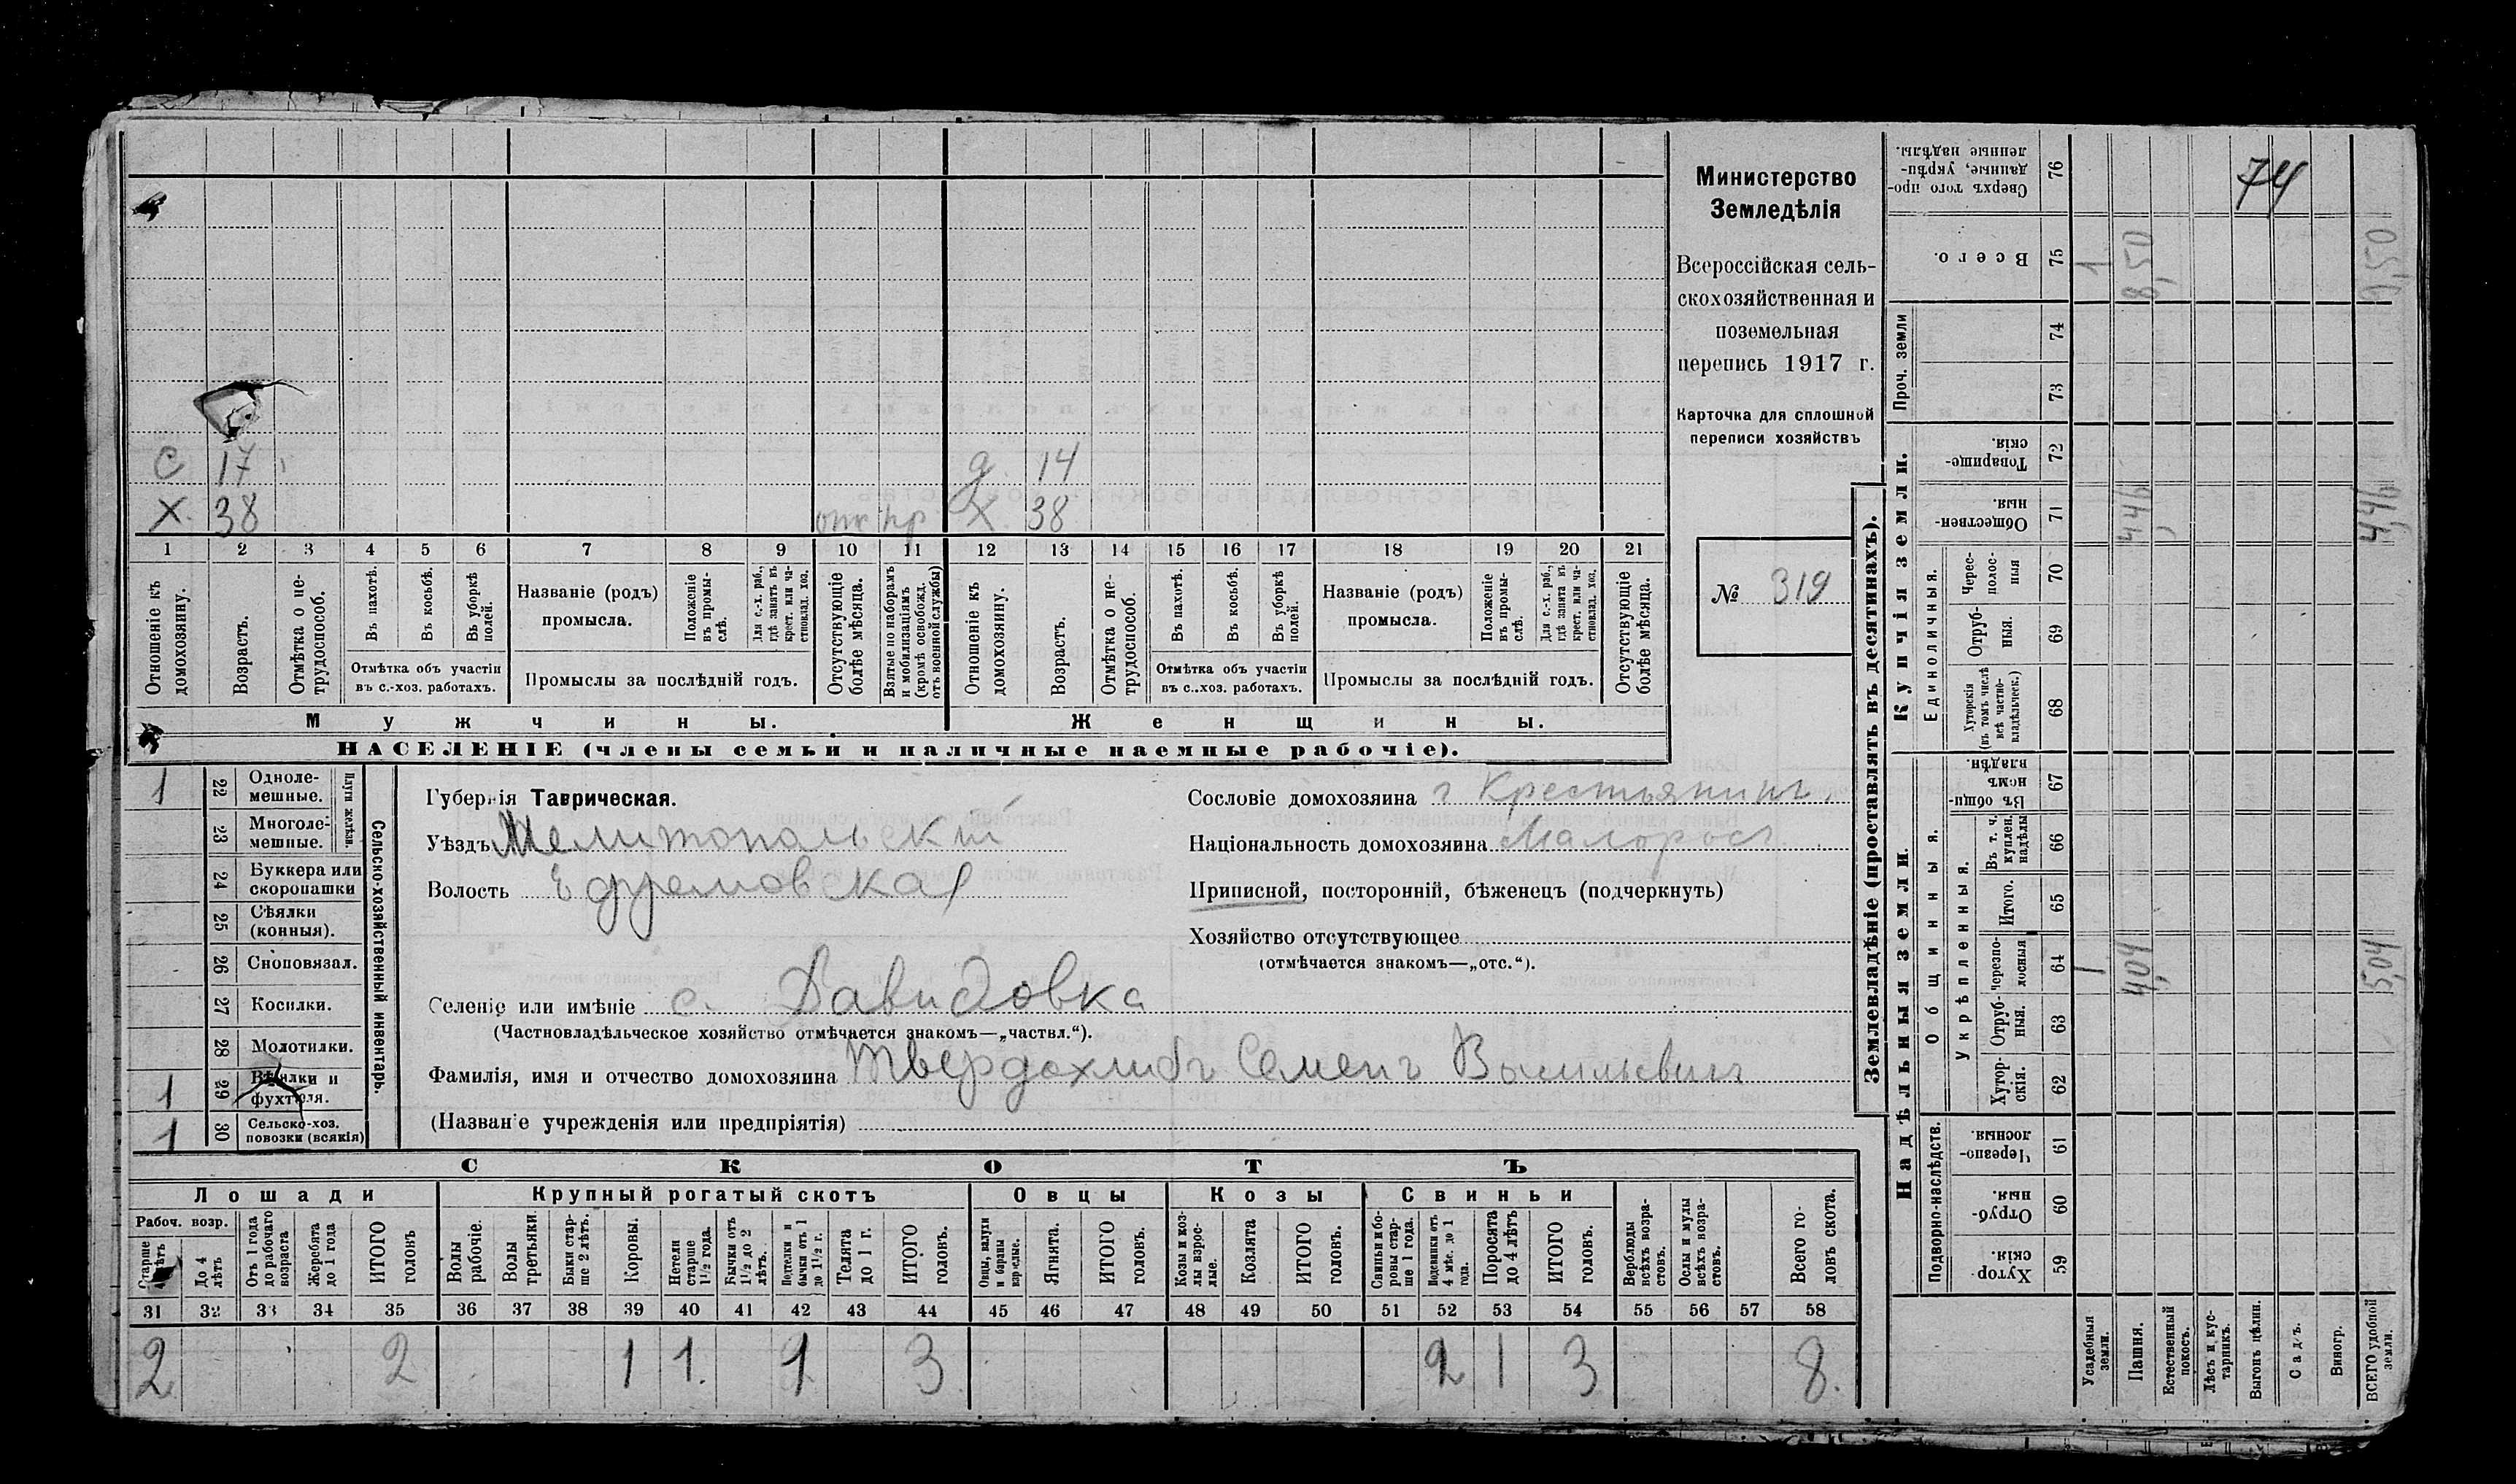 74
Министерство
Земледѣлія
Всероссійская сель-
скохозяйственная и
поземельная
перепись 1917 г.
Карточка для сплошной
переписи хозяйствъ
№ 319
С 17 д. 14
Х. 38 отс пр Х. 38
1 2 3 4 5 6 7 8 9 10 11 12 13 14 15 16 17 18 19 20 21
Отношеніе къ домохозяину.
Возрастъ.
Отмѣтка о не-трудоспособ.
Въ пахотѣ.
Въ косьбѣ.
Въ уборкѣ полей.
Отмѣтка объ участіи
въ с.-хоз. работахъ.
Названіе (родъ)
промысла.
Положеніе въ промы-слѣ.
Для с.-х. раб., гдѣ занятъ въ крест. или ча-стновлад. хоз.
Промыслы за послѣдній годъ.
Отсутствующіе болѣе мѣсяца.
Взятые по наборамъ и мобилизаціямъ (кромѣ освобожд. отъ военной службы)
Отношеніе къ домохозяину.
Возрастъ.
Отмѣтка о не-трудоспособ.
Въ пахотѣ.
Въ косьбѣ.
Въ уборкѣ полей.
Отмѣтка объ участіи
въ с.-хоз. работахъ.
Названіе (родъ)
промысла.
Положеніе въ промы-слѣ.
Для с.-х. раб., гдѣ занята въ крест. или ча-стновлад. хоз.
Промыслы за послѣдній годъ.
Отсутствующіе болѣе мѣсяца.
Мужчины. Женщины.
НАСЕЛЕНІЕ (члены семьи и наличные наемные рабочіе).
Сельско-хозяйственный инвентарь.
Плуги желѣзн.
1 22 Одноле-мешные.
23 Многоле-мешные.
24 Буккера или скоропашки
25 Сѣялки (конныя).
26 Сноповязал.
27 Косилки.
28 Молотилки.
1 29 Вѣялки и фухтеля.
1 30 Сельско-хоз. повозки (всякія)
Губернія Таврическая.
Уѣздъ Мелитопольскій
Волость Ефремовская
Сословіе домохозяина Крестьянинъ.
Національность домохозяина Малоросъ
Приписной, посторонній, бѣженецъ (подчеркнуть)
Хозяйство отсутствующее
(отмѣчается знакомъ—„отс.“).
Селеніе или имѣніе с. Давидовка
(Частновладѣльческое хозяйство отмѣчается знакомъ—„частвл.“).
Фамилія, имя и отчество домохозяина Твердохлибъ Семенъ Васильевичъ
(Названіе учрежденія или предпріятія)
СКОТЪ
Лошади Крупный рогатый скотъ Овцы Козы Свиньи
Рабоч. возр.
Старше лѣтъ
До 4 лѣтъ
Отъ 1 года до рабочаго возраста
Жеребята до 1 года
ИТОГО головъ
Волы рабочіе.
Волы третьяки.
Быки стар-ше 2 лѣтъ.
Коровы.
Нетели старше 1½ года.
Бычки отъ 1½ до 2 лѣтъ.
Подтелки и бычки отъ 1 до 1½ г.
Телята до 1 г.
ИТОГО головъ.
Овцы, валухи и бараны взрослые.
Ягнята.
ИТОГО головъ.
Козы и коз-лы взрос-лые.
Козлята
ИТОГО головъ.
Свиньи и бо-ровы стар-ше 1 года.
Подсвинки отъ 4 мѣс. до 1 года.
Поросята до 4 лѣтъ
ИТОГО головъ.
Верблюды всѣхъ возра-стовъ.
Ослы и мулы всѣхъ возра-стовъ.
Всего го-ловъ скота.
31 32 33 34 35 36 37 38 39 40 41 42 43 44 45 46 47 48 49 50 51 52 53 54 55 56 57 58
2 2 1 1. 1 3 2 1 3 8.
Землевладѣніе (проставлять въ десятинахъ).
Сверхъ того про-данные, укрѣп-ленные надѣлы. 76
Всего. 75 1 8,50 9,50
Проч. земли
74
73
Купчія земли.
Товарище-скія. 72
Обществен-ныя. 71 4,46 4,46
Единоличныя.
Черес-полос-ныя 70
Отруб-ныя. 69
Хуторскія (въ томъ числѣ всѣ частно-владѣльческ.) 68
Надѣльныя земли.
Общинныя.
Въ общин-номъ владѣн. 67
Укрѣпленныя.
Въ т. ч. куплен. надѣлы 66
Итого. 65
Черезпо-лосныя 64 1 4,04 5,04
Отруб-ныя. 63
Хутор-скія. 62
Подворно-наслѣдств.
Черезпо-лосныя. 61
Отруб-ныя. 60
Хутор-скія. 59
Усадебныя земли.
Пашня.
Естественный покосъ.
Лѣсъ и кус-тарникъ.
Выгонъ цѣлин.
Садъ.
Виногр.
ВСЕГО удобной земли.